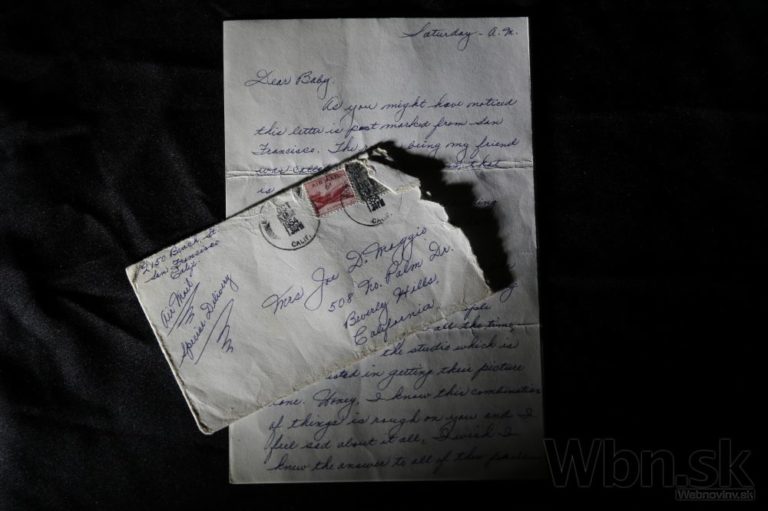 Saturday - A.M.
Dear Baby,
As you might have noticed
this letter is post marked from San
Francisco. The being my friend
was that
is
AIR MAIL
6¢
CALIF.
CALIF.
2150 Beach St.
San Francisco
Calif.
Air Mail
Special Delivery
Mrs Joe D. Maggio
508 No. Palm Dr.
Beverly Hills,
California.
all the time
the studio which is
in getting their picture
done. Honey, I know this combination
of things is rough on you and I
feel sad about it all, I wish I
knew the answer to all of this
Wbn.sk
Webnoviny.sk